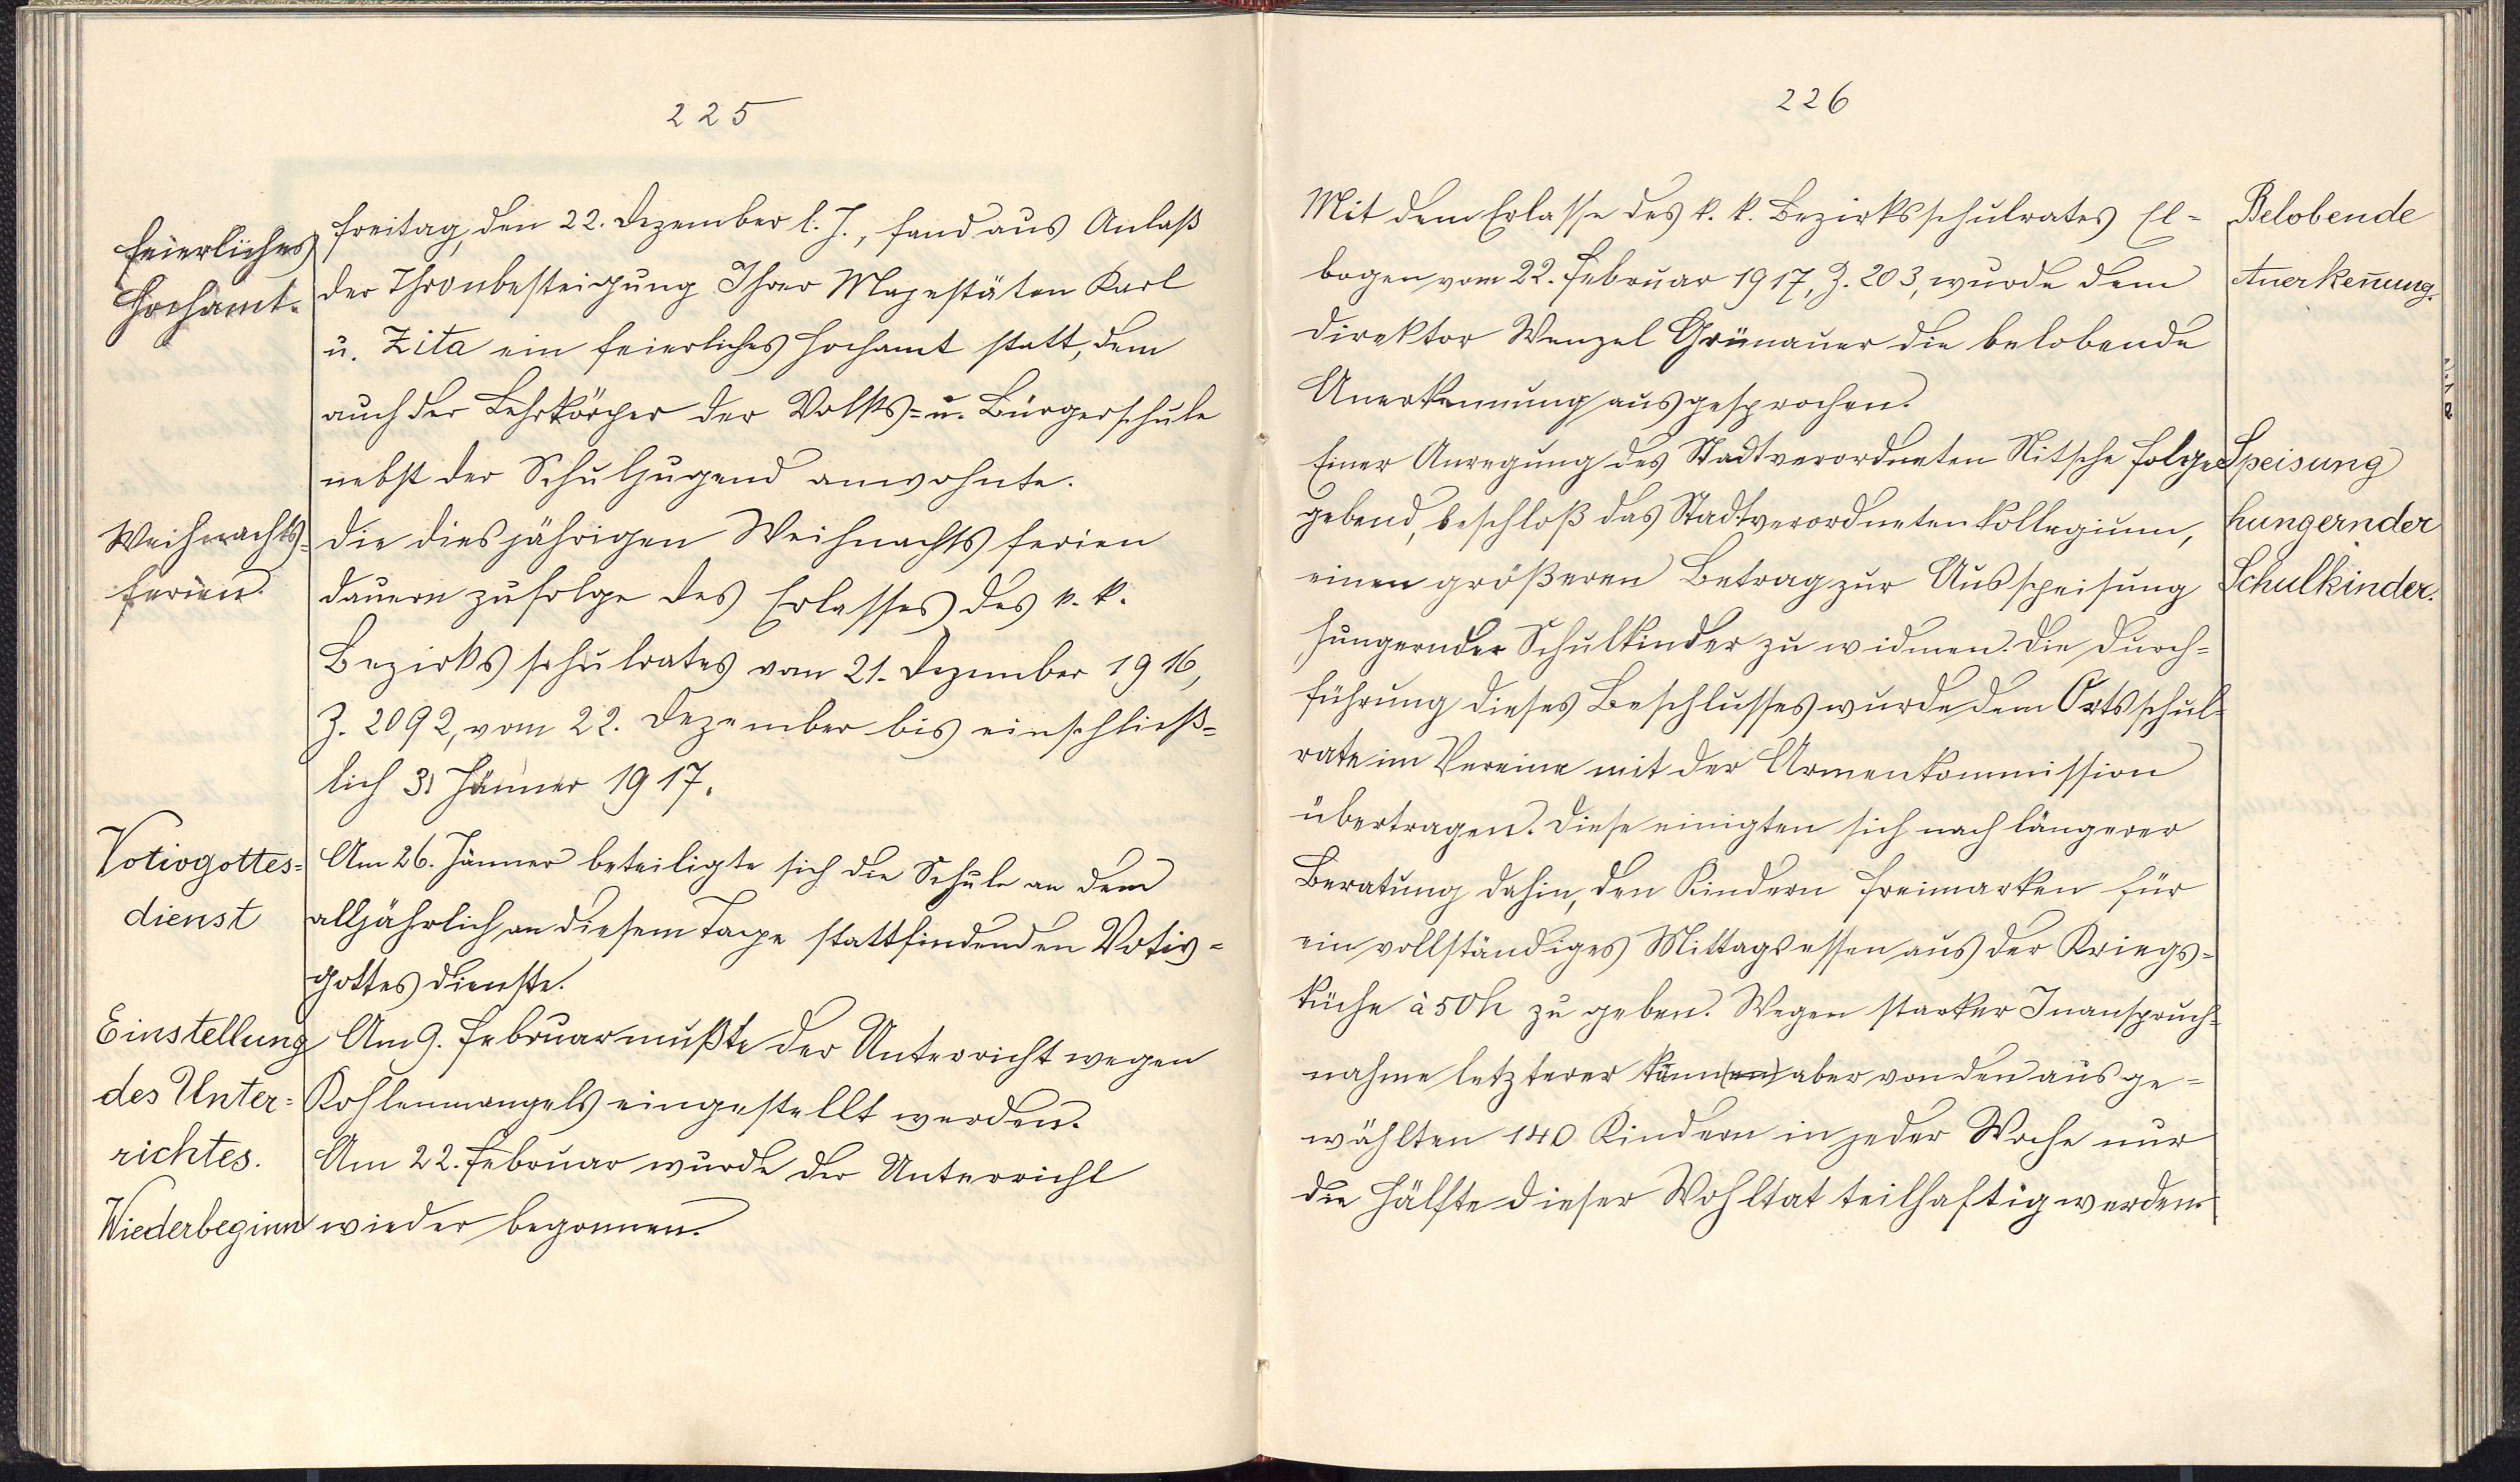 225
Feierliches
Hochamt.
Freitag, den 22. Dezember l. J., fand aus Anlaß
der Thronbesteigung Ihrer Majestäten Karl
u. Zita ein feierliches Hochamt statt, dem
auch der Lehrkörper der Volks- u. Bürgerschule
nebst der Schuljugend anwohnte.
Weihnachts-
ferien.
Die diesjährigen Weihnachtsferien
dauern zufolge des Erlasses des k. k.
Bezirksschulrates vom 21. Dezember 1916,
Z. 2092, vom 22. Dezember bis einschließ-
lich 3. Jänner 1917.
Votivgottes-
dienst
Am 26. Jänner beteiligte sich die Schule an dem
alljährlich an diesem Tage stattfindenden Votiv-
gottesdienste.
Einstellung
des Unter-
richtes.
Am 9. Februar mußte der Unterricht wegen
Kohlenmangels eingestellt werden.
Am 22. Februar wurde der Unterricht
Wiederbeginn
wieder begonnen.
226
Mit dem Erlasse des k. k. Bezirksschulrates El-
bogen vom 22. Februar 1917, Z. 203, wurde dem
Direktor Wenzel Grünauer die belobende
Anerkennung ausgesprochen.
Belobende
Anerkeñung.
Einer Anregung des Stadtverordneten Nitsche folge
gebend, beschloß das Stadtverordnetenkollegium,
einen größeren Betrag zur Ausspeisung
hungernder Schulkinder zu widmen. Die Durch-
führung dieses Beschlusses wurde dem Ortsschul-
rate im Vereine mit der Armenkommission
übertragen. Diese einigten sich nach längerer
Beratung dahin, den Kindern Freimarken für
ein vollständiges Mittagsessen aus der Kriegs-
küche à 50 h zu geben. Wegen starker Inanspruch-
nahme letzterer kann(en) aber von den ausge-
wählten 140 Kindern in jeder Woche nur
die Hälfte dieser Wohltat teilhaftig werden.
Speisung
hungernder
Schulkinder.